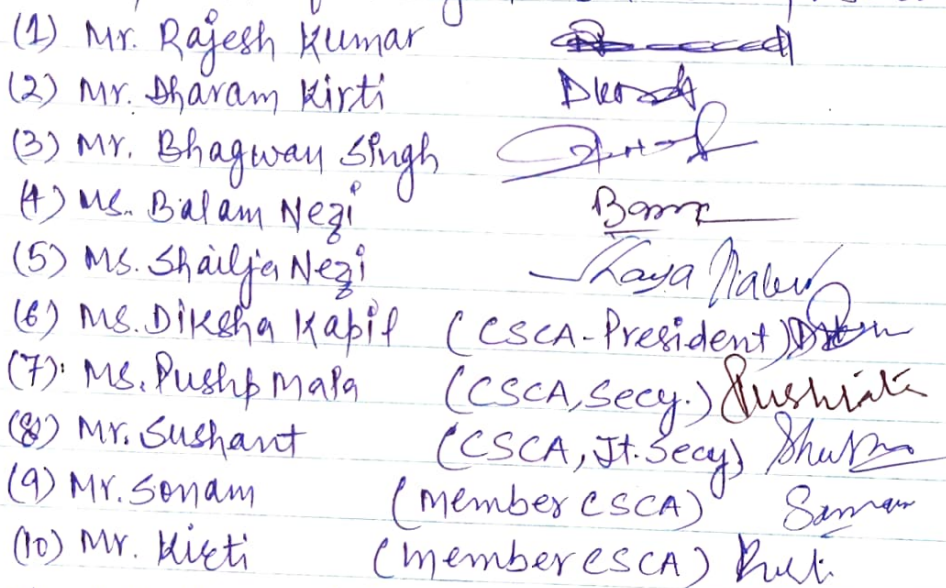 (1) Mr. Rajesh Kumar
(2) Mr. Dharam Kirti
(3) Mr. Bhagwan Singh
(4) Ms. Balam Negi
(5) Ms. Shailja Negi
(6) Ms. Diksha Kapil (CSCA-President)
(7) Ms. Pushp Mala (CSCA, Secy.)
(8) Mr. Sushant (CSCA, Jt. Secy)
(9) Mr. Sonam (Member CSCA)
(10) Mr. Kirti (Member CSCA)